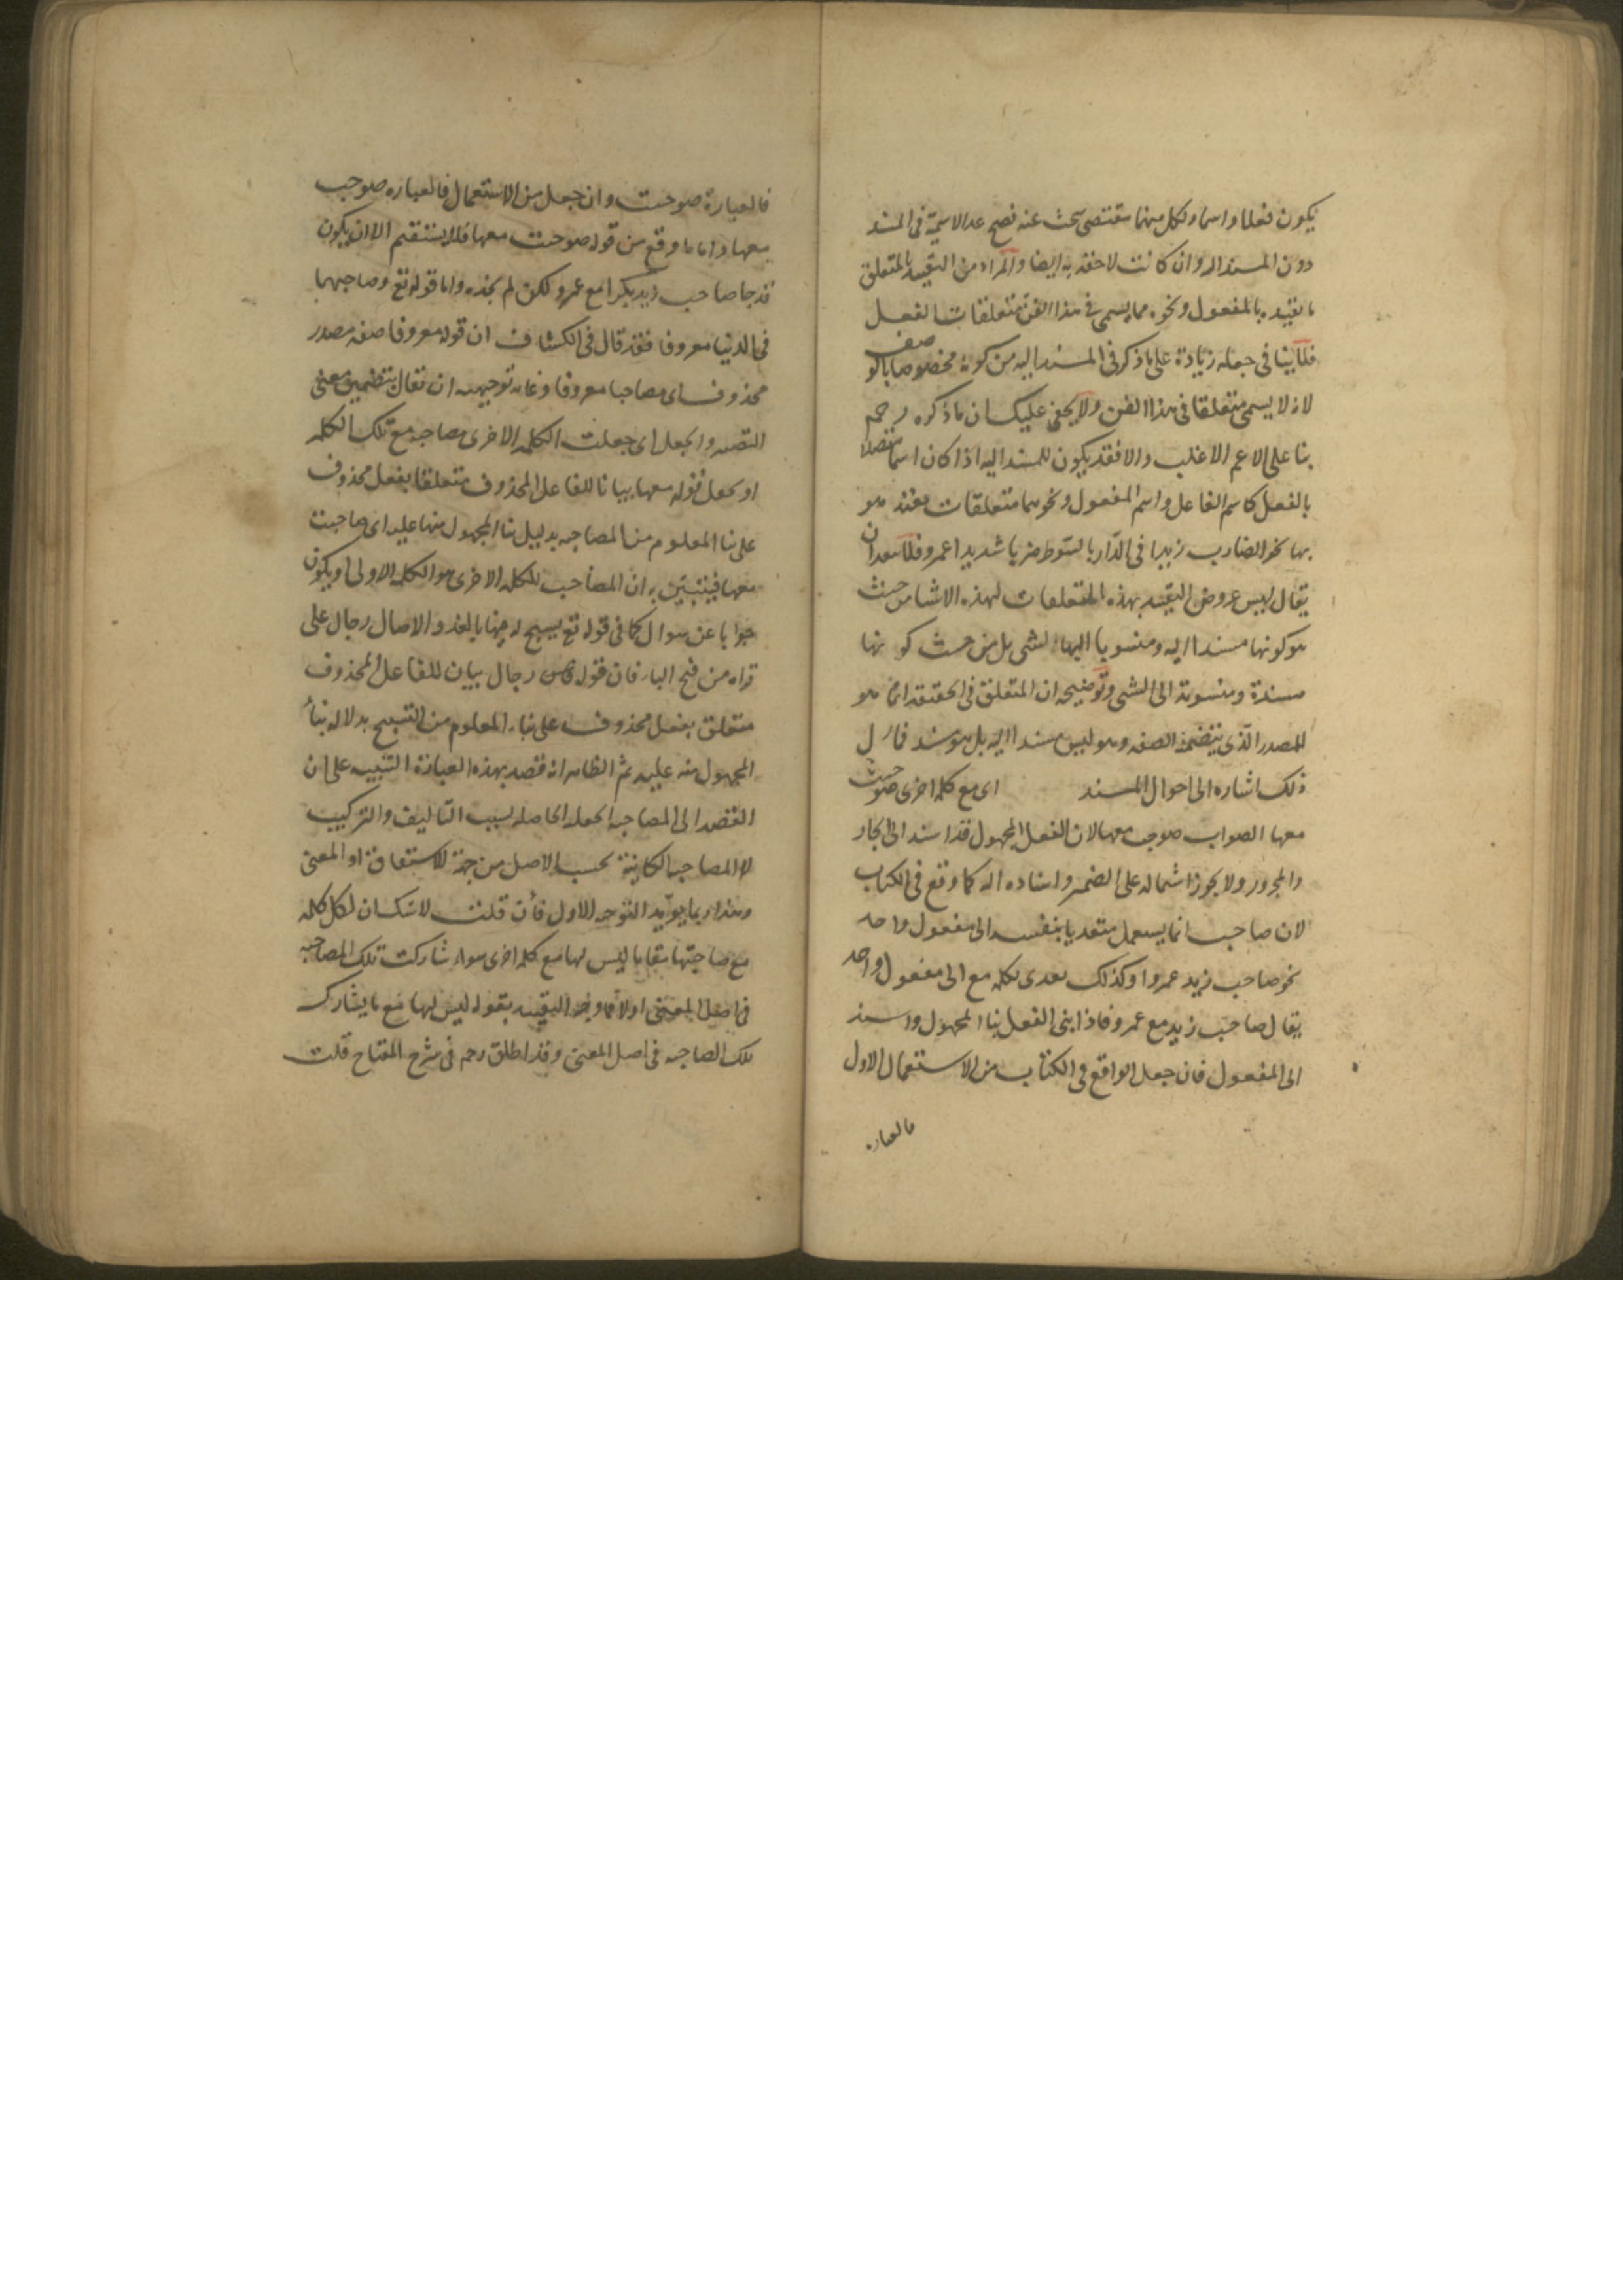 يكون فعلا واسما ولكل منهما مقتضى يبحث عنه فصح عد الاسمية فى المسند
دون المسند اليه وان كانت لاحقة به ايضا والمراد من التقييد بالمتعلق
ما تقييده بالمفعول ونحوه مما يسمى فى هذا الفن متعلقات الفعل
فلا ينافى جعله زيادة على ما ذكر فى المسند اليه من كونه مخصوصا بالوصف
لانه لا يسمى متعلقا فى هذا الفن ولا يخفى عليك ان ما ذكره رحمه
بنا على الاعم الاغلب والا فقد يكون للمسند اليه اذا كان اسما متصلا
بالفعل كاسم الفاعل واسم المفعول ونحوهما متعلقات يقيد هو
بها نحو الضارب زيدا فى الدار بالسوط ضربا شديدا عمرو فلا بعد ان
يقال ليس عروض التقييد بهذه المتعلقات لهذه الاشيا من حيث
هو كونها مسندا اليه ومنسوبا اليها لشى بل من حيث كونها
مسندة ومنسوبة الى الشى وتوضيحه ان المتعلق فى الحقيقة انما هو
للمصدر الذى يتضمنه الصفه وهو ليس مسندا اليه بل هو مسند فمآل
ذلك اشاره الى احوال المسند اى مع كلمة اخرى صوحبت
معها الصواب صوحب معها لان الفعل المجهول قد اسند الى الجار
والمجرور ولا يجوز اشتماله على الضمير واسناده اليه كما وقع فى الكتاب
لان صاحب انما يستعمل متعديا بنفسه الى مفعول واحد
نحو صاحب زيد عمروا وكذلك يعدى بكلمة مع الى مفعول واحد
يقال صاحب زيد مع عمرو فاذا بنى الفعل بنا المجهول واسند
الى المفعول فان جعل الواقع فى الكتاب من الاستعمال الاول
فالعباره
فالعبارة صوحبت وان جعل من الاستعمال فالعباره صوحب
معها واما ما وقع من قوله صوحبت معها فلا يستقيم الا ان يكون
قد جا صاحب زيد بكرا مع عمرو لكن لم نجده واما قوله تع وصاحبهما
فى الدنيا معروفا فقد قال فى الكشاف ان قوله معروفا صفه مصدر
محذوف اى مصاحبا معروفا وغاية توجيهه ان يقال بتضمين معنى
التصيير والجعل اى جعلت الكلمه الاخرى مصاحبه مع تلك الكلمه
او يجعل قوله معها بيانا للفاعل المحذوف متعلقا بفعل محذوف
على بنا المعلوم من المصاحبه بدليل بنا المجهول منها عليه اى صاحبت
معها فيتبين به ان المصاحب للكلمه الاخرى هو الكلمه الاولى او يكون
جوابا عن سوال كما فى قوله تع يسبح له فيها بالغدو والاصال رجال على
قراه من فتح البا فان قوله رجال بيان للفاعل المحذوف
متعلق بفعل محذوف على بناء المعلوم من التسبيح بدلاله بناء
المجهول منه عليه ثم الظاهر انه قصد بهذه العبارة التنبيه على ان
القصد الى المصاحبه الجعليه الحاصله بسبب التاليف والتركيب
لا المصاحبة الكاينة بحسب الاصل من جهة الاستقاقة او المعنى
وهذا ربما يويد التوجيه الاول فأن قلت لا شك ان لكل كلمه
مع صاحبتها مقاما ليس لها مع كلمه اخرى سواء شاركت تلك المصاحبه
فى اصل المعنى او لا فما وجه التقييد بقوله ليس لها مع ما يشارك
تلك الصاحبه فى اصل المعنى وقد اطلق رحمه فى شرح المفتاح قلت